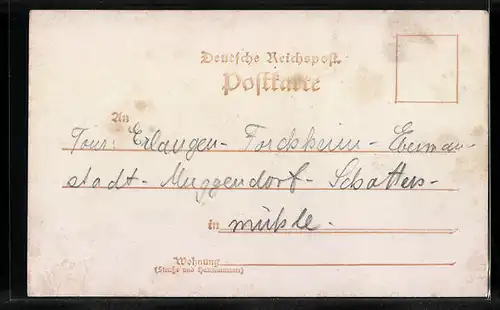 Deutsche Reichspost.
Postkarte
An
Tour: Erlangen - Forchheim - Eberman-
stadt - Muggendorf - Schotters-
in mühle.
Wohnung
(Straße und Hausnummer)